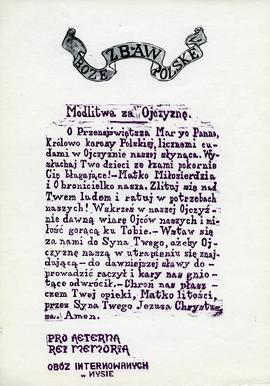 BOŻE ZBAW POLSKĘ
Modlitwa za Ojczyznę.
O Przenajświętsza Maryo Panno,
Królowo korony Polskiej, licznemi cu-
dami w Ojczyźnie naszej słynąca. Wy-
słuchaj Twe dzieci ze łzami pokornie
Cię błagające!-Matko Miłosierdzia
i Obronicielko nasza. Zlituj się nad
Twem ludem i ratuj w potrzebach
naszych! Wskrześ w naszej Ojczyź-
nie dawną wiarę Ojców naszych i mi-
łość gorącą ku Tobie.-Wstaw się
za nami do Syna Twego, ażeby Ojczy-
znę naszą w utrapieniu się znaj-
dującą-do dawniejszej sławy do-
prowadzić raczył i kary nas gnio-
tące odwrócił.-Chroń nas płasz-
czem Twej opieki, Matko litości,
przez Syna Twego Jezusa Chrystu-
sa. Amen.
PRO AETERNA
REI MEMORIA
OBÓZ INTERNOWANYCH
w NYSIE